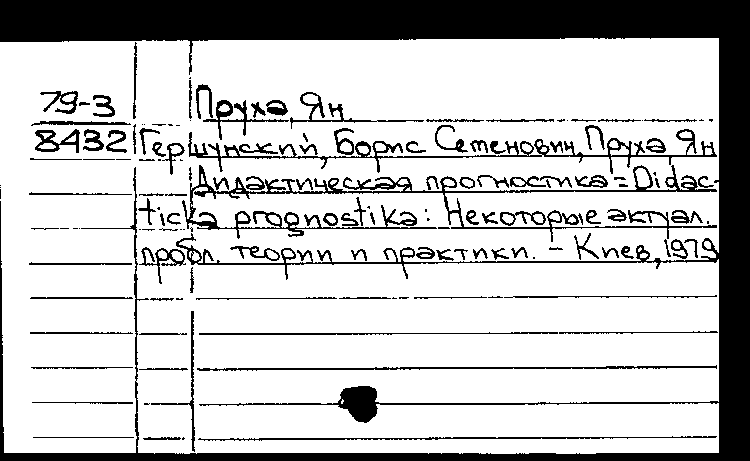 79-3 Пруха, Ян.
8432 Гершунский, Борис Семенович, Пруха, Ян
Дидактическая прогностика = Didac-
ticka prognostika: Некоторые актуал.
пробл. теории и практики. – Киев, 1979